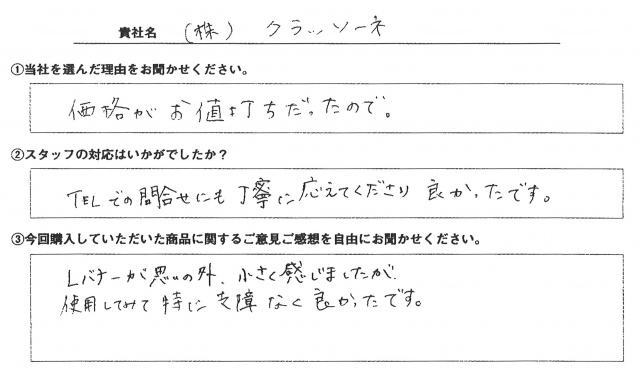 貴社名 (株) クラッソーネ
①当社を選んだ理由をお聞かせください。
価格がお値打ちだったので。
②スタッフの対応はいかがでしたか？
TELでの問合せにも丁寧に応えてくださり良かったです。
③今回購入していただいた商品に関するご意見ご感想を自由にお聞かせください。
Lバナーが思いの外、小さく感じましたが
使用してみて特に支障なく良かったです。